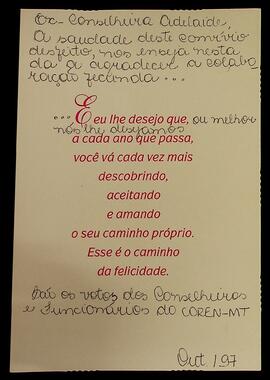 Ex- Conselheira Adelaide,
A saudade deste convívio
desfeito, nos enseja nesta
da a agradecer a colabo
ração fecunda...
...E eu lhe desejo que, ou melhor
nós lhe desejamos
a cada ano que passa,
você vá cada vez mais
descobrindo,
aceitando
e amando
o seu caminho próprio.
Esse é o caminho
da felicidade.
São os votos dos Conselheiros
e Funcionários do COREN-MT
Out/97